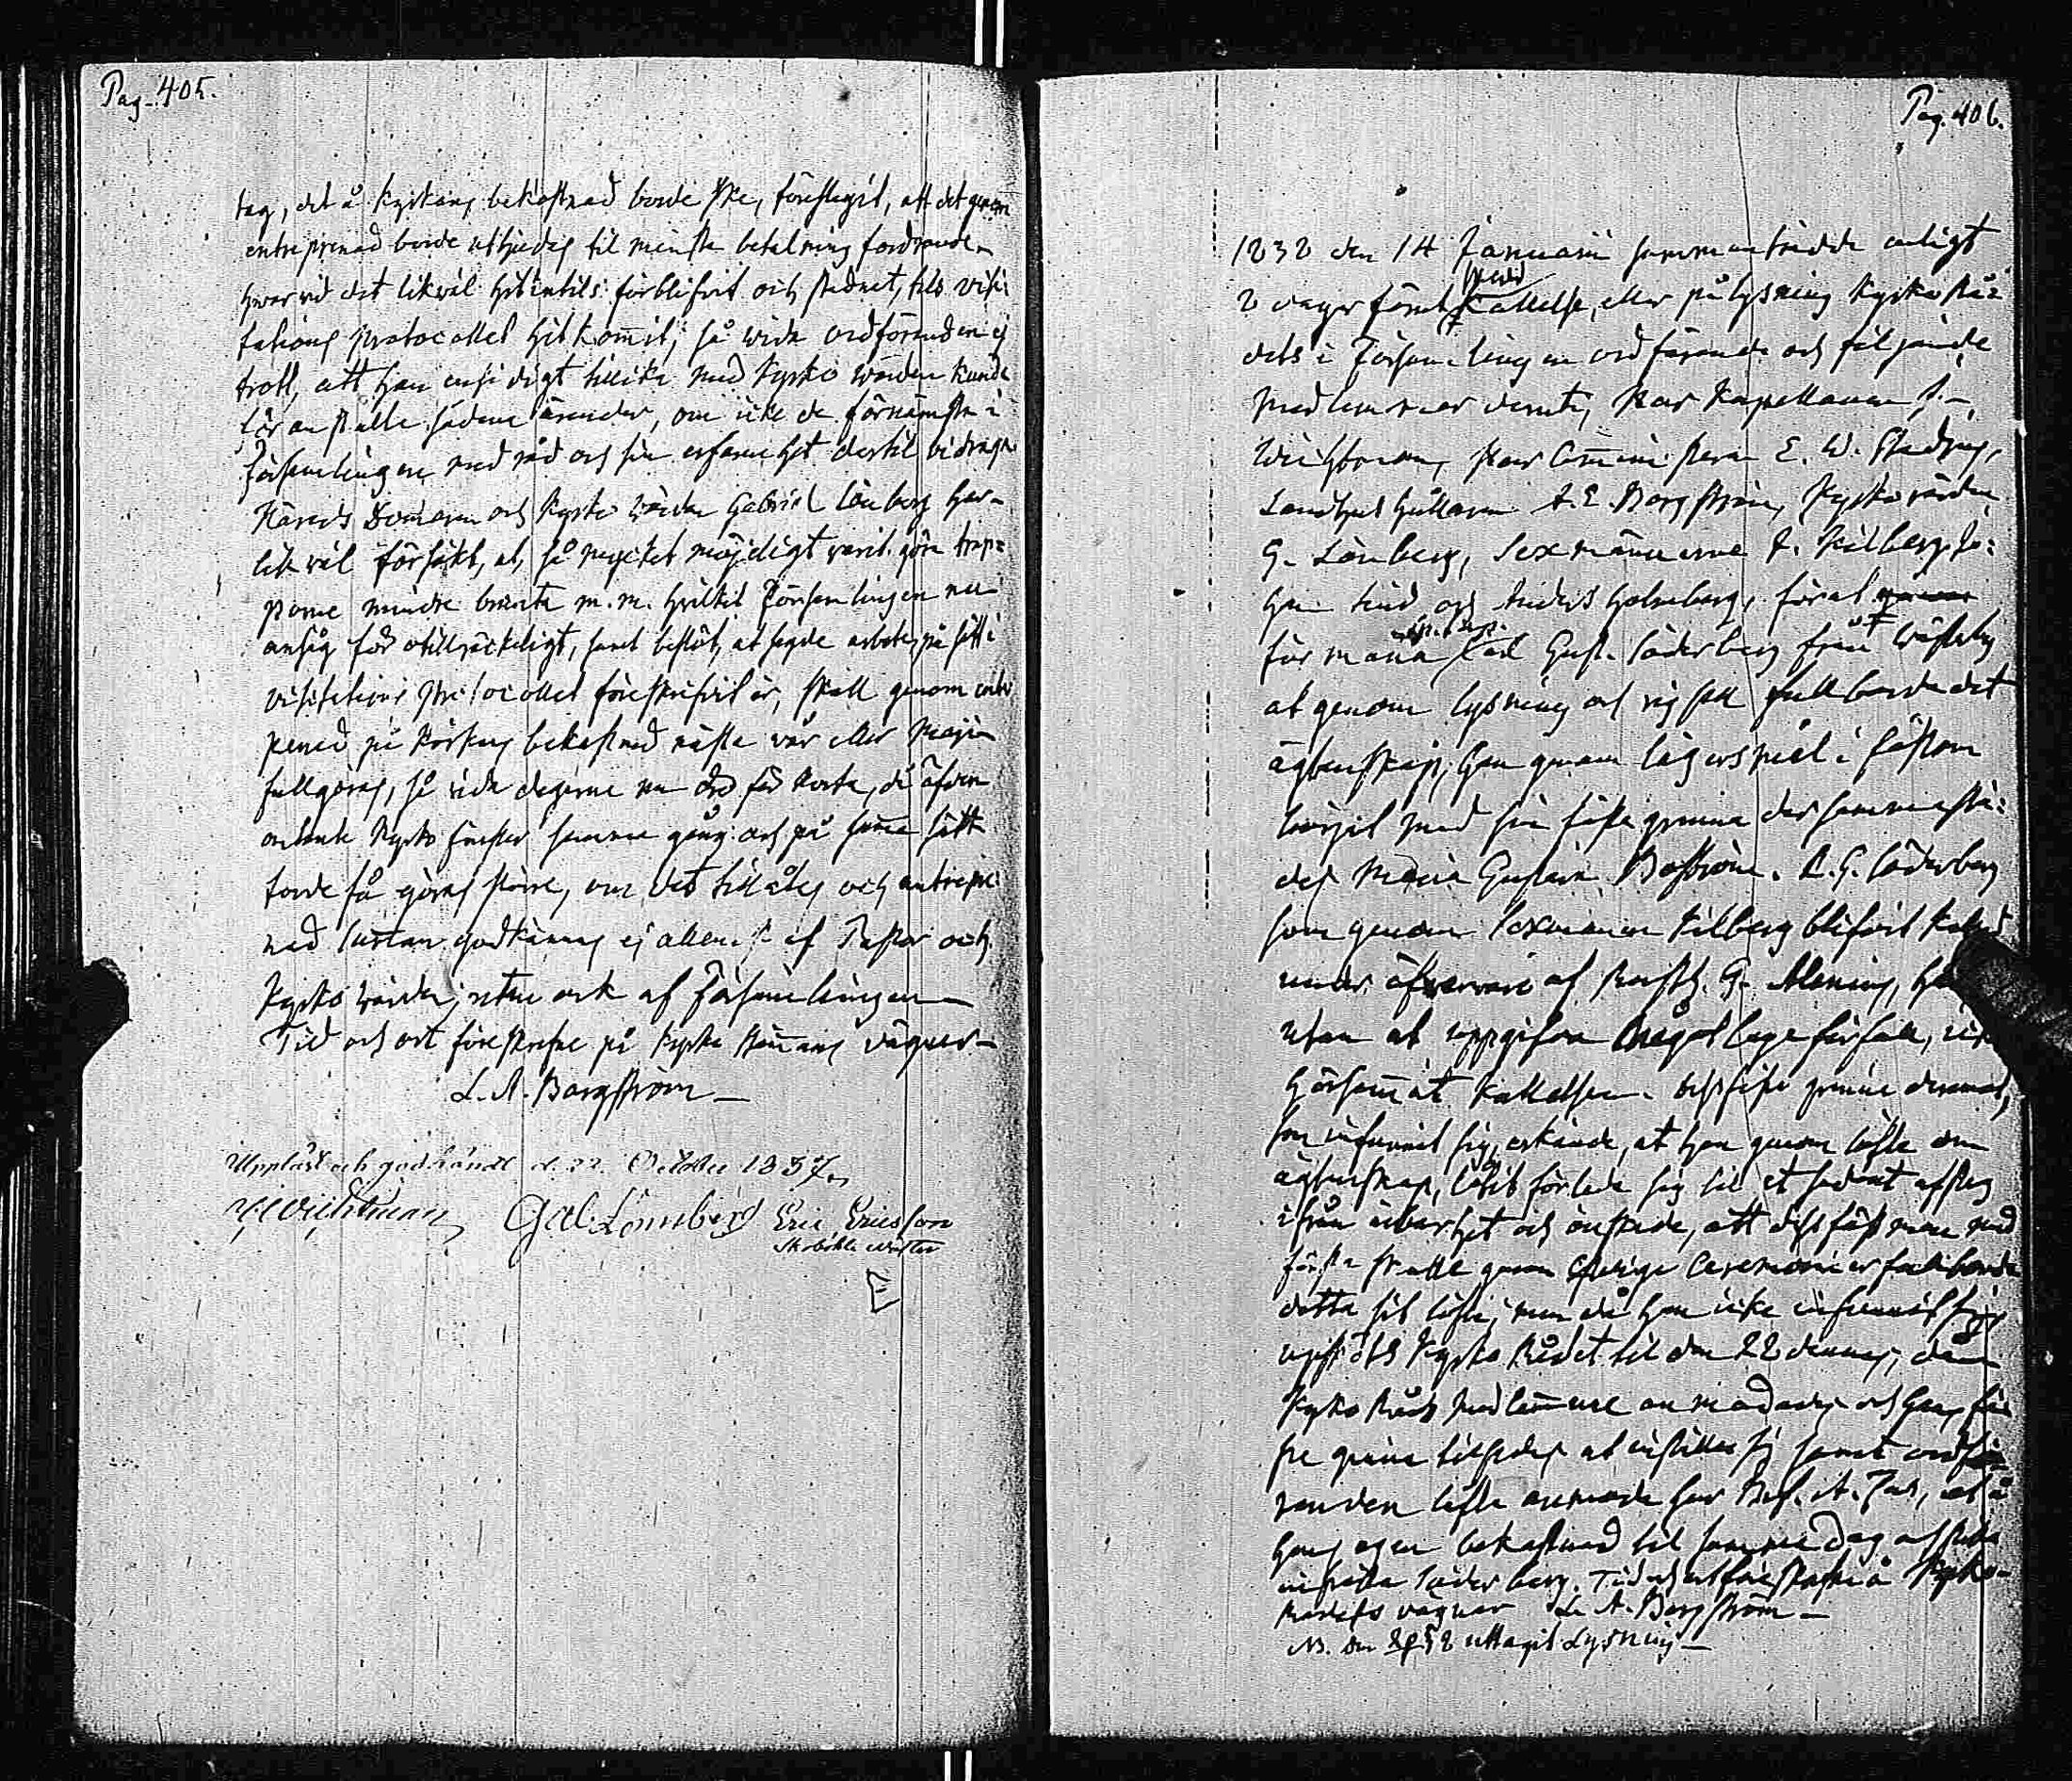 Pag. 405.
tag, det å Kyrkans bekostnad borde ske, föreslagit, att det genom
entreprenad borde utbjudas til minsta betalning fordrande
hvarvid det likväl hitintils förblifvit och stadnat, tils visi-
tations protocollet hitkom̄it; så vida ordföranden ej
trott, att han ensidigt tillika med Kyrko Wärden kunde
föranstalta sådana ärender, om icke de förnämsta i
Församlingen med råd och sin erfarenhet dertil bidraga.
Härads Domaren och Kyrko Wärden Gabriel Lönberg har
likväl försökt, at, så mycket möjeligt varit, göra trap-
porna mindre branta m.m. hvilket Församlingen nu
ansåg för otillräckeligt, samt beslöt, at sagde arbete, på sätt i
visitations Protocollet föreskrifvit är, skall genom entre
penad på Kyrkans bekostnad nästa vår eller Maji
fullgöras, så vida dagarne nu äro för korta, då äfven
Kyrko fönster samma gång och på sam̄a sätt
torde få göras större, om det tillåtes och entrepre
nad sum̄an godkännes ej allenast af Pastor och
Kyrko Wärden, utan ock af Församlingen
Tid och ort föreskrefne på Kyrko Stäm̄ans vägnar
L. A. Borgström
Uppläst och godkändt d. 22 October 1837.
Wichtman Gab. Lönnberg Eric Ericsson
Pag. 406.
1838 den 14 Januarii sammanträdde enligt
2 dagar förut skedd Kallelse, eller pålysning Kyrko Rå-
dets i Församlingen ordförande och följande
Medlemmar deruti, Herr Kapellanen
Herr Com̄inistern E. W.
Landthushållaren A. E. Borgström, Kyrkovärden
G. Lönberg, Sexmännerne P. Kilberg, Jo-
han Lind och Anders Holmberg, för at
förmana Carl Gust. Söderberg från
at genom lysning och vigsel fullborda det
ägtenskap, han genom lägersmål i fästom
börjat med sin fästeqvinna dersammastä-
des Maria Gustava Boström. C. G. Söderberg
som genom Sexmannen Kilberg blifvit kallad
under öfvervaro af G. Alenius, har
utan at uppgifva något laga förfall, icke
hörsam̄at Kallelsen. Dess fästeqvinna deremot,
som infunnit sig, erkände, at hon genom löfte om
ägtenskap, låtit förleda sig til et sådant afsteg
ifrån ärbarhet och önskade, att dess fästman med
första skulle genom behörige Ceremonier fullborda
detta sit löfte, men då han icke infunnit sig
uppsköts Kyrko Rådet til den 22 dennes, då
Kyrko Råds Medlemmarne anmodades och hans fäs
te qvinna tilsades at inställa sig samt ordfö
randen lofte anmoda A. at å
hans egen bekostnad til samma dag
Söderberg. Tid och ort föreskrefne å Kyrko-
Rådets vägnar L. A. Borgström
NB. Den uttagit Lysning